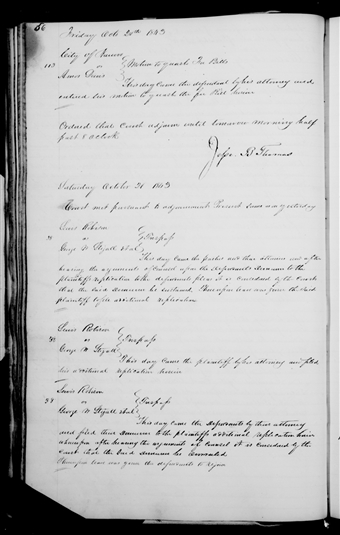 56
Friday Oct 20th 1843
City of
112 vs } Motion to quash Fee Bills
Amos Davis
This day came the defendant by his attorney and
entered his motion to quash the fee Bill herein
Ordered that Court adjourn until tomorrow morning half
past 8 oclock
Jesse B Thomas
Saturday October 21 1843
Court met pursuant to adjournment Present same as yesterday
Louis Robison
vs } Trespass
George W
This day came the parties and their attornies and after
hearing the arguments of Counsel upon the Defendants demurrer to the
plaintiffs replication to the defendants plea it is considered by the Court
that the said demurrer be sustained Whereupon leave was given the said
plaintiff to file additional replication
Louis Robison
vs } Trespass
George W
This day came the plaintiff by his attorney and filed
his additional replication herein
Louis Robison
vs } Trespass
George W
This day came the defendants by their attorney
and filed their demurrer to the plaintiffs additional replication herein
whereupon after hearing the arguments of Counsel it is considered by the
Court that the said demurrer be
Whereupon leave was given the defendants to